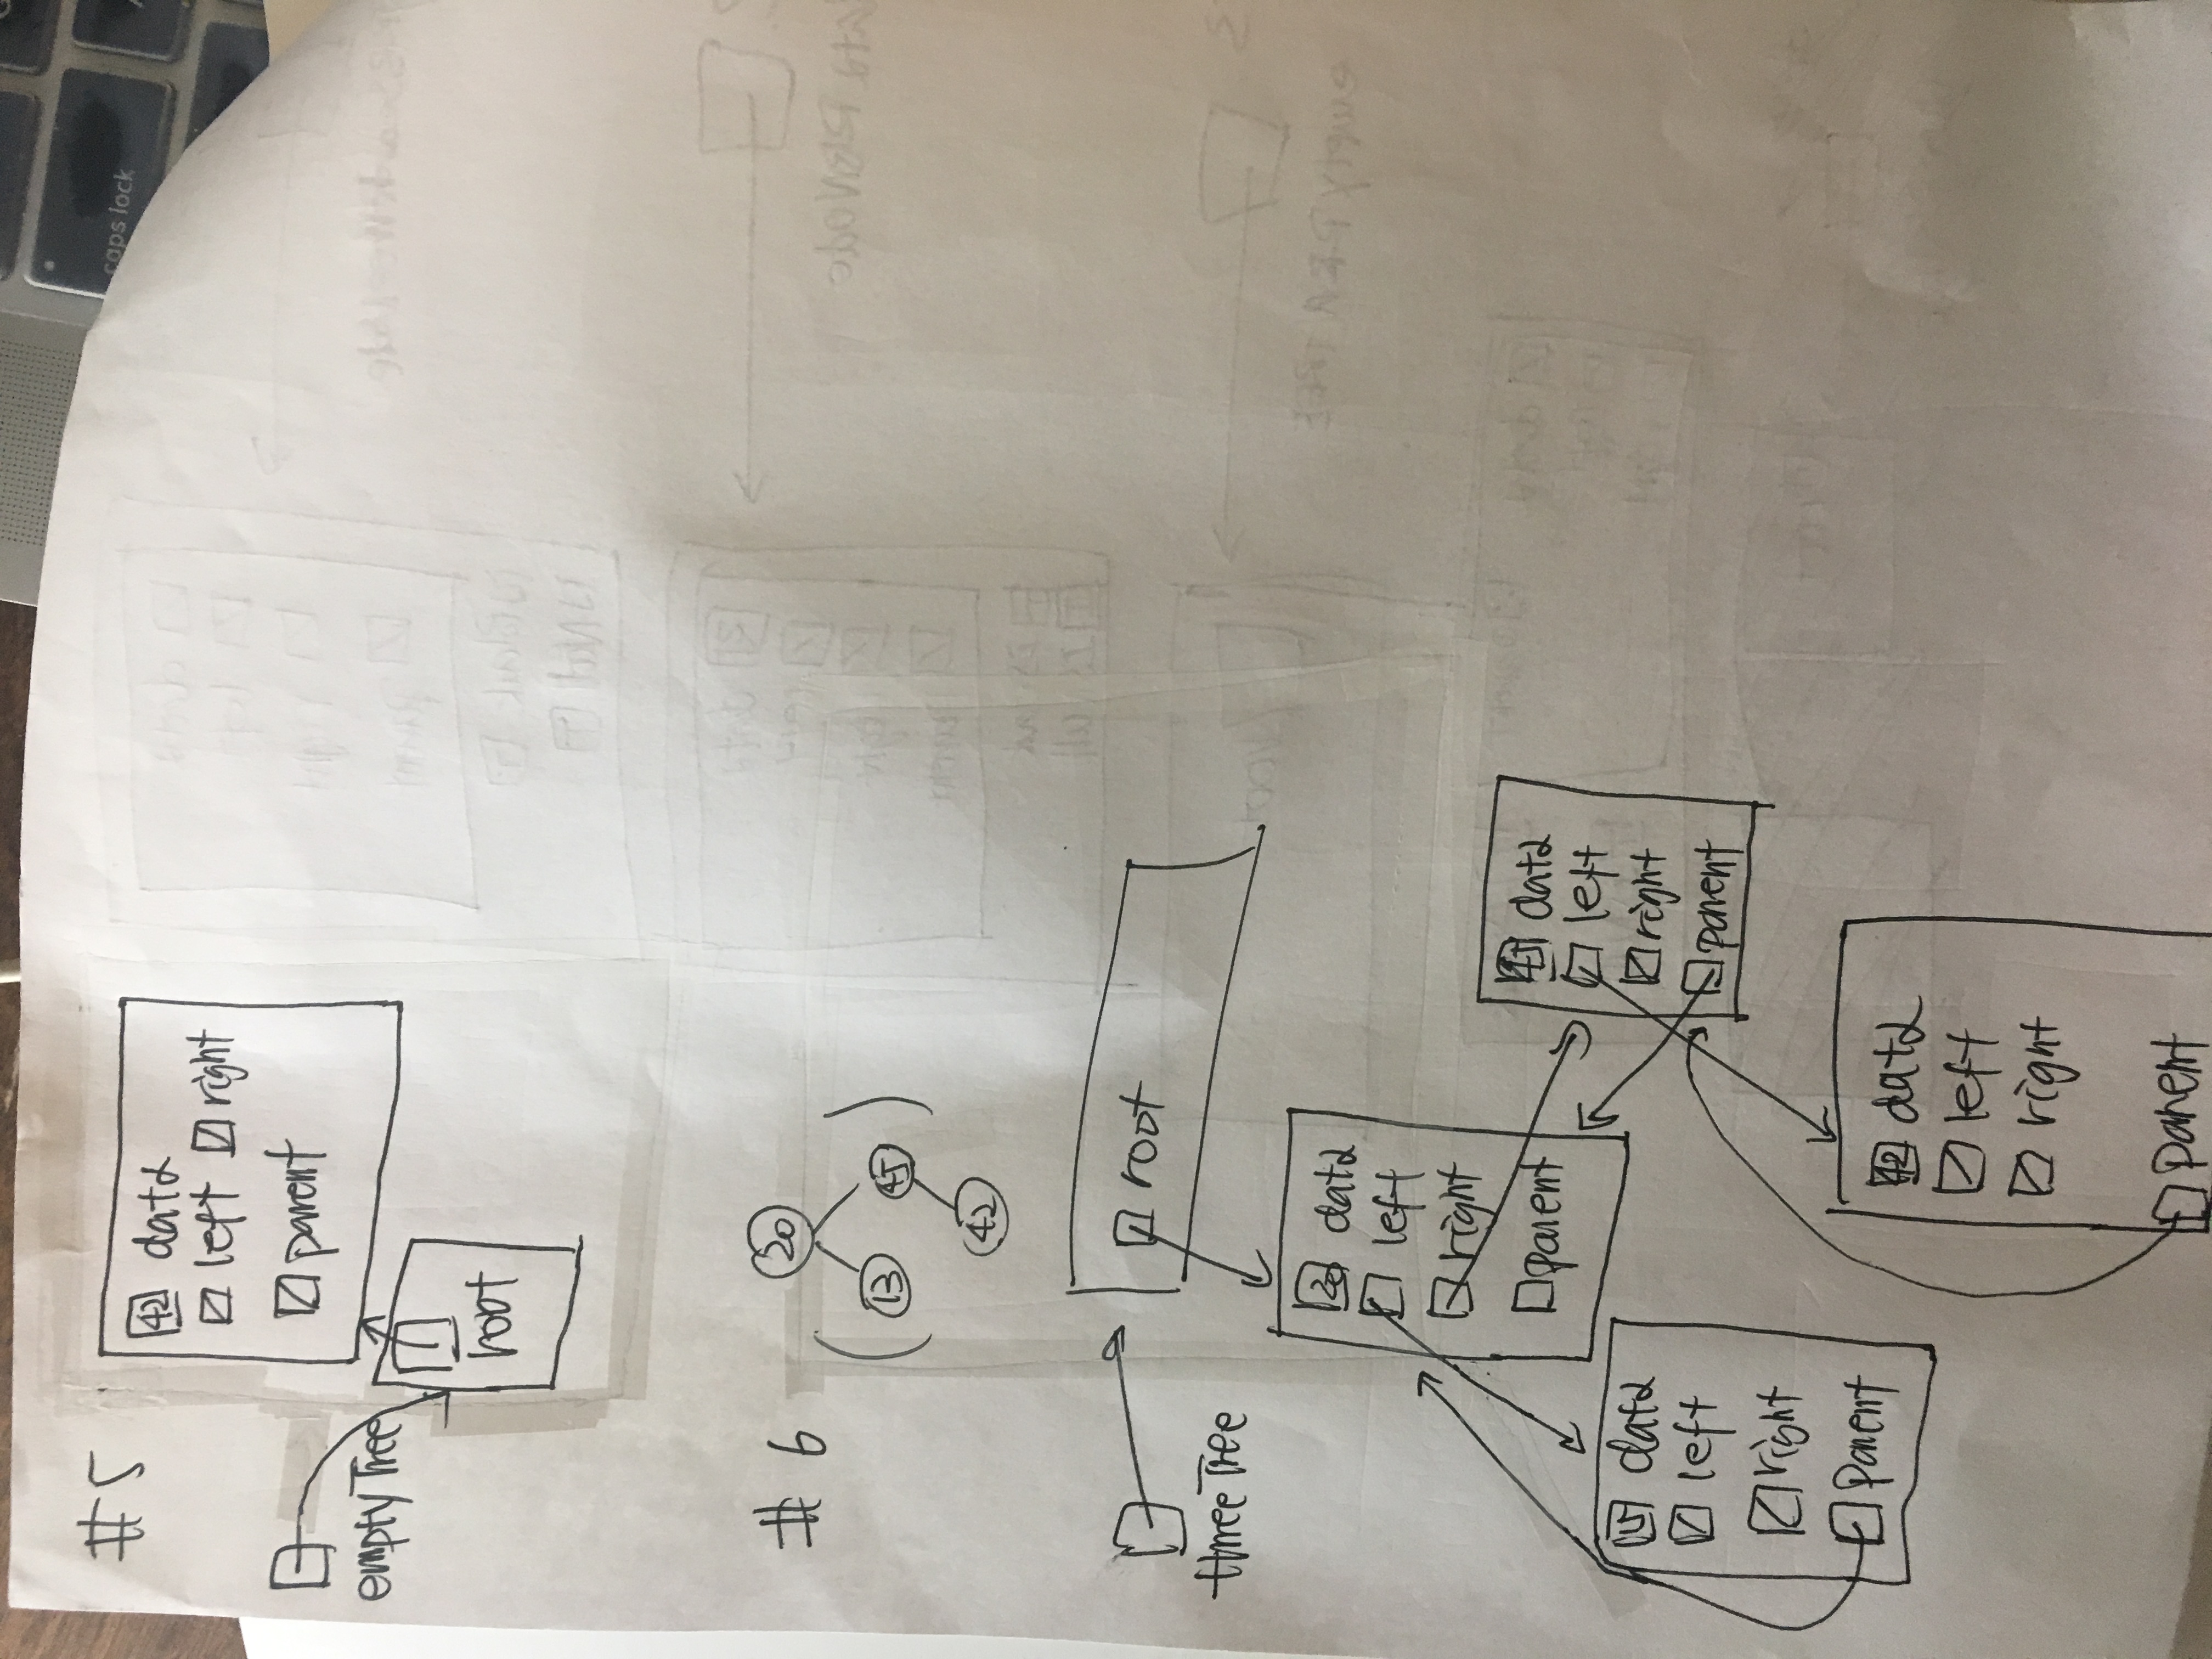 #5
42 data
left right
parent
emptyTree
root
#6
20
13 45
42
root
threeTree
20 data
left
right
parent
45 data
left
right
parent
data
left
right
parent
42 data
left
right
parent
caps lock